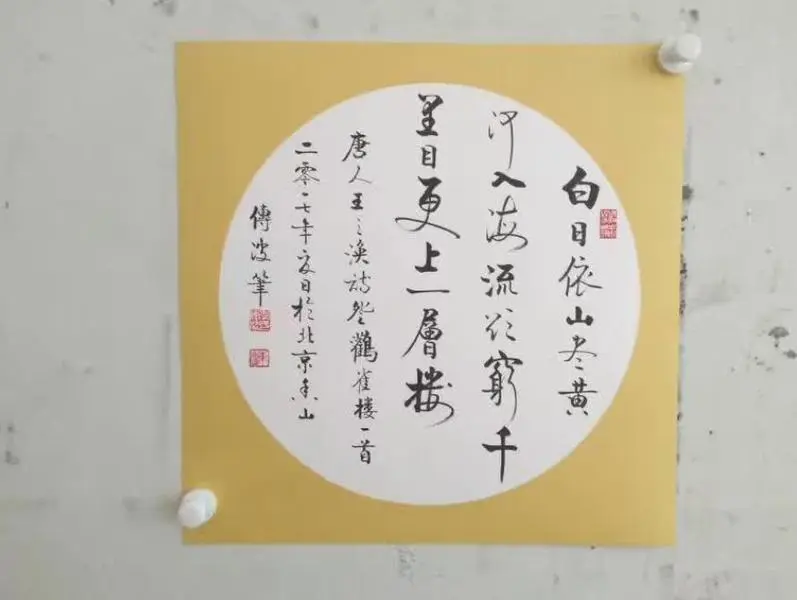 白日依山尽黄
河入海流欲穷千
里目更上一层楼
唐人王之涣诗登鹳雀楼一首
二零一七年夏日于北京香山
傅波笔